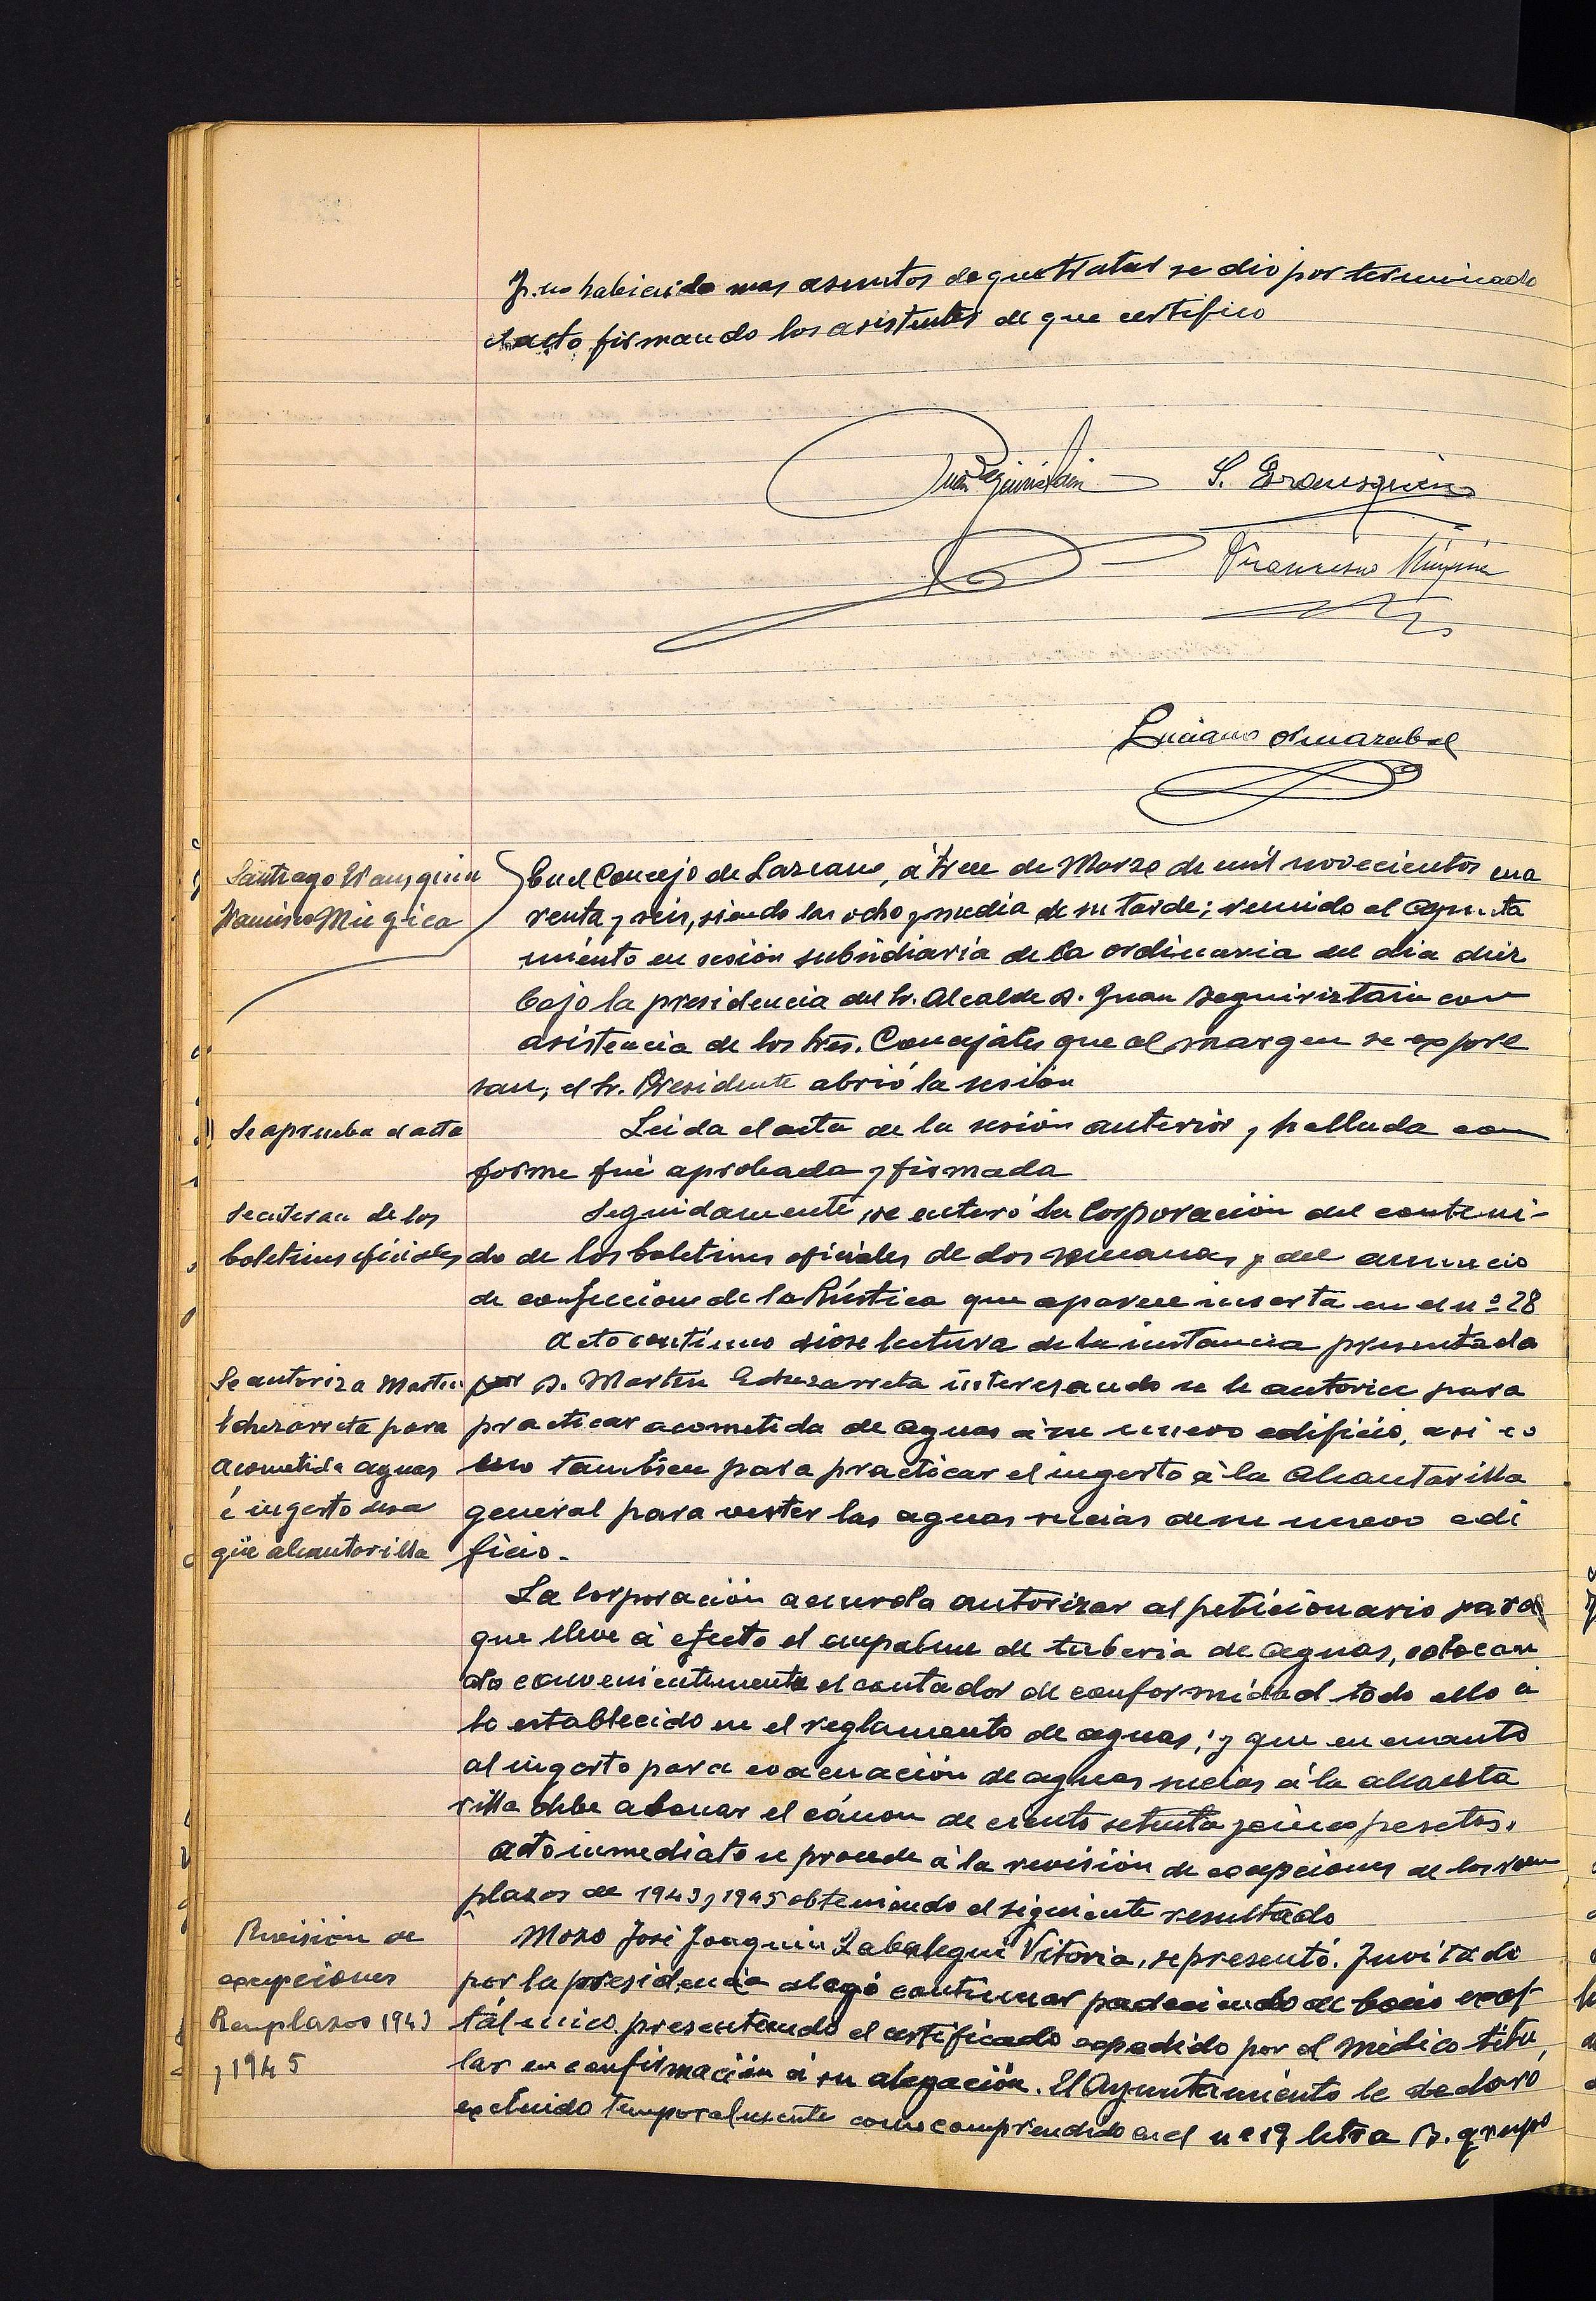 Y no habiendo mas asuntos de que tratar se dio por terminado
el acto firmando los asistentes de que certifico
S. Eransquin
Francisco Múgica
Luciano Amazabal
Santiago Eransquin
Francisco Múgica
En el Concejo de Lazcano, á trece de Marzo de mil novecientos cua
renta y seis, siendo las ocho y media de su tarde; reunido el Ayunta
miento en sesión subsidiaria de la ordinaria del dia diez
bajo la presidencia del Sr. Alcalde D. Juan Beguiristain con
asistencia de los Sres. Concejales que al margen se expre
san, el Sr. Presidente abrió la sesión
Se aprueba el acta
Leida el acta de la sesión anterior y hallada con
forme fué aprobada y firmada
Se enteran de los
boletines oficiales
Seguidamente se enteró la Corporación del conteni-
do de los boletines oficiales de dos semanas y del anuncio
de confeccion de la Rústica que aparece inserta en el nº 28
Acto continuo diose lectura de la instancia presentada
Se autoriza Martin
Echezarreta para
acometida aguas
é ingerto desa
güe alcantarilla
por D. Martin Echezarreta interesando se le autorice para
practicar acometida de aguas á su nuevo edificio, asi co
mo tambien para practicar el ingerto á la Alcantarilla
general para verter las aguas sucias de su nuevo edi
ficio.
La Corporación acuerda autorizar al peticionario para
que lleve á efecto el empalme de tuberia de aguas, colocan
do convenientemente el contador de conformidad todo ello á
lo establecido en el reglamento de aguas; y que en cuanto
al ingerto para evacuación de aguas sucias á la alcanta
rilla debe abonar el cánon de ciento setenta y cinco pesetas.
Acto inmediato se procede á la revisión de excepciones de los reem
plazos de 1943 y 1945 obteniendo el siguiente resultado
Revisión de
excepciones
Remplazos 1943
y 1945
Mozo José Joaquin Zabalegui Vitoria, se presentó. Invitado
por la presidencia alegó continuar padeciendo de bocio exof
tálmico presentando el certificado expedido por el médico titu
lar en confirmación á su alegación. El Ayuntamiento le declaró
excluido temporalmente como comprendido en el nº 19 letra B. grupo